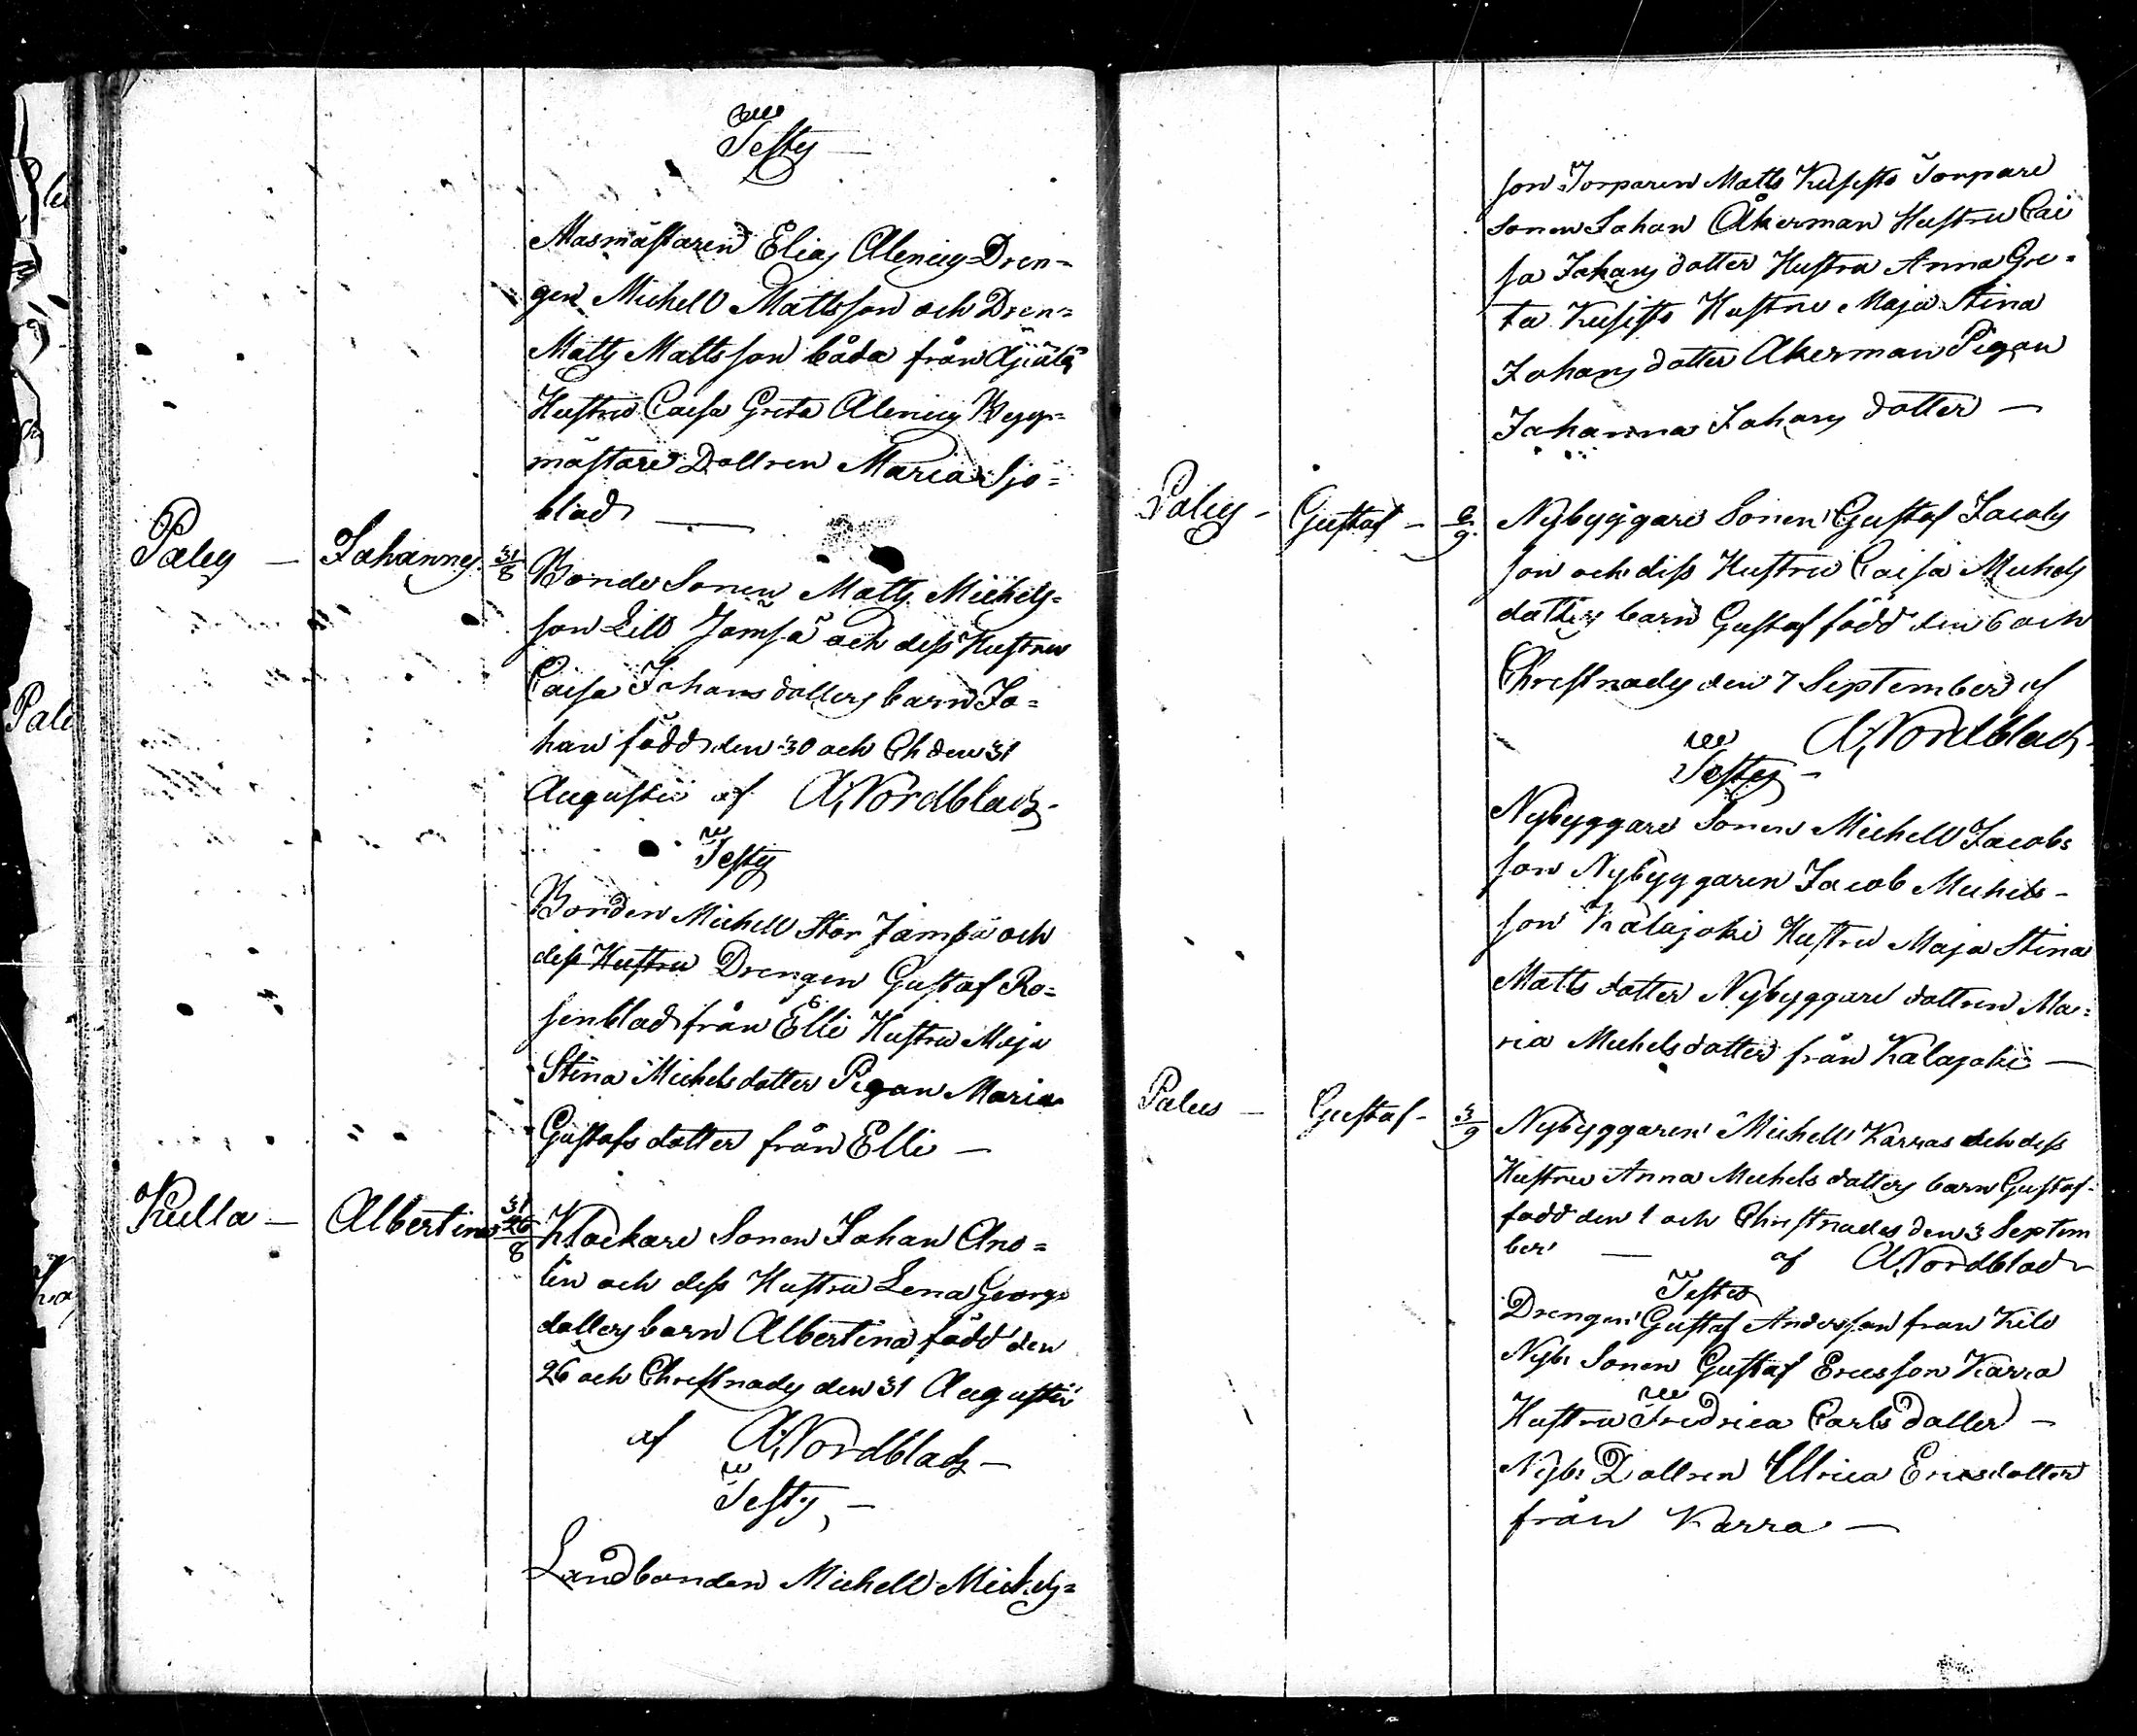 Testes
Masmästaren Elias Alenius Dren=
gen Michell Mattsson och Dren=
Matts Mattsson båda från
Hustru Caisa Greta Alenius Bygg=
mästare Dottren Maria Sjö=
blad —
Palus — Johannes 31/8 Bonde Sonen Matts Michels=
son Lill Jamsä och dess Hustru
Caisa Johansdotters barn Jo=
han född den 30 och Ch den 31
Augusti af A Nordblad
Testes
Bonden Michell Stor Jamsä och
dess Hustru Drengen Gustaf Ro=
senblad från Elli Hustru Maja
Stina Michelsdotter Pigan Maria
Gustafs dotter från Elli —
Kulla — Albertina 31/26/8 Klockare Sonen Johan Ano=
lin och dess Hustru Lena Georgs
dotters barn Albertina född den
26 och Christnades den 31 Augusti
af A Nordblad —
Testes —
Landbonden Michell Michels=
son Torparen Matts Kusisto Torpare
Sonen Johan Åkerman Hustru Cai
sa Johans dotter Hustru Anna Gre=
ta Kusisto Hustru Maja Stina
Johans dotter Åkerman Pigan
Johanna Johans dotter —
Palus — Gustaf — 6/9 Nybyggare Sonen Gustaf Jacobs
son och diss Hustru Caisa Michels
dotters barn Gustaf född den 6 och
Christnades den 7 September af
A Nordblad
Testes —
Nybyggare Sonen Michell Jacobs
son Nybyggaren Jacob Michels-
son Kalajoki Hustru Maja Stina
Matts dotter Nybyggare dottren Ma=
ria Michelsdotter från Kalajoki —
Palus — Gustaf — 3/9 Nybyggaren Michell Karras och dess
Hustru Anna Michels dotters barn Gustaf
född den 1 och Christnades den 3 Septem
ber — af A Nordblad
Testes
Drengen Gustaf Andersson från Kilo
Nyb: Sonen Gustaf Ericsson Karra
Hustru Fredrica Carlsdotter —
Nyb: Dottren Ulrica Ericsdotter
från Karra —